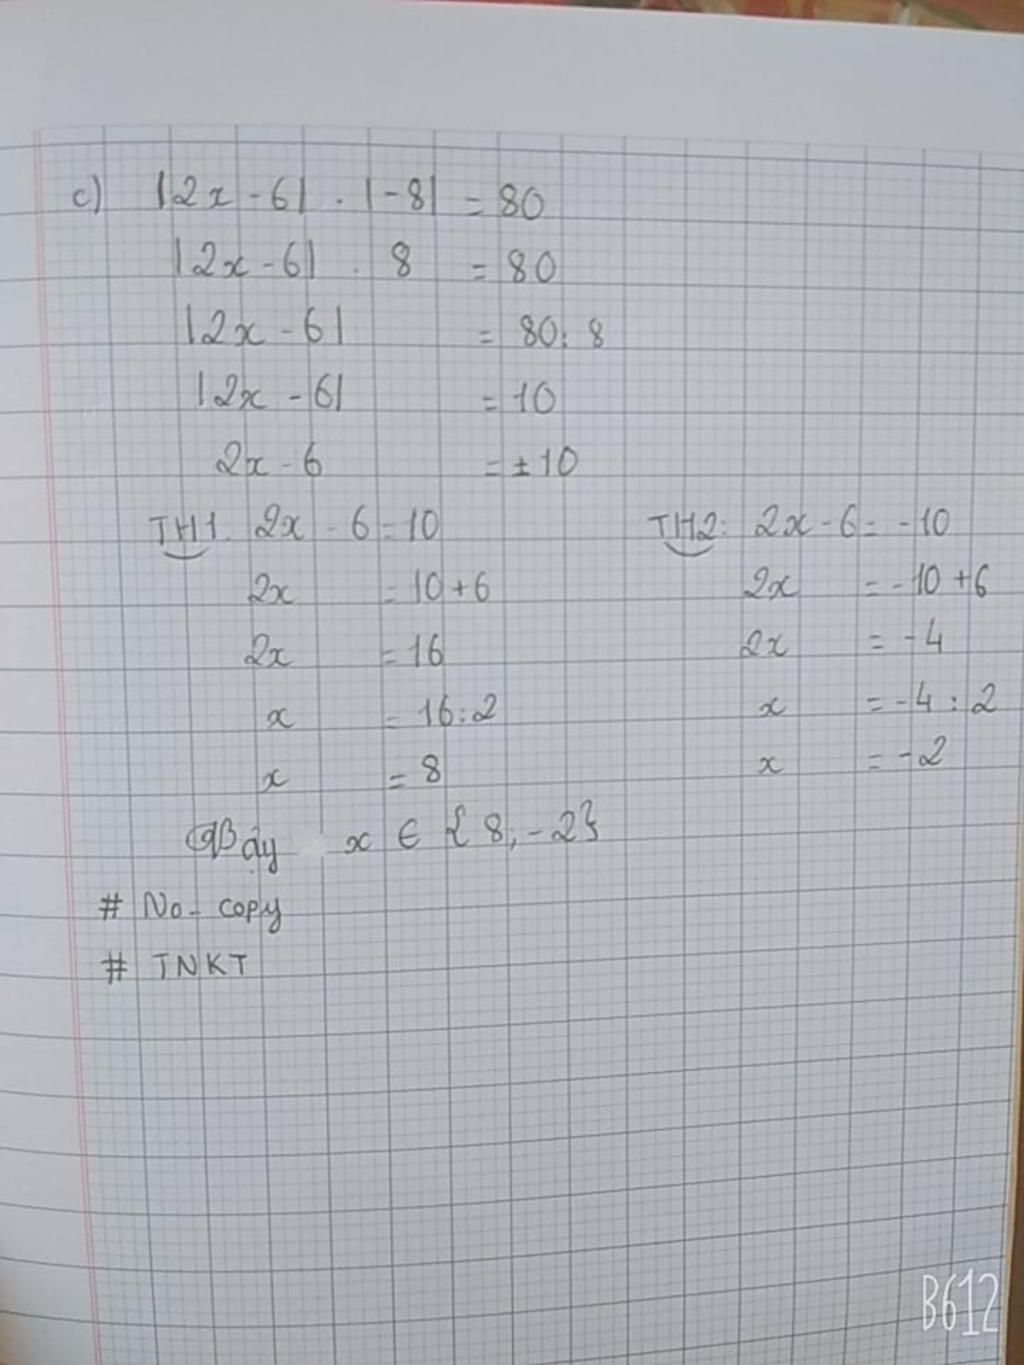 c) |2x - 6| . |-8| = 80
|2x - 6| . 8 = 80
|2x - 6| = 80 : 8
|2x - 6| = 10
2x - 6 = ± 10
TH1: 2x - 6 = 10
2x = 10 + 6
2x = 16
x = 16 : 2
x = 8
TH2: 2x - 6 = -10
2x = -10 + 6
2x = -4
x = -4 : 2
x = -2
Vậy x ∈ { 8, -2}
# No - copy
# TNKT
B612